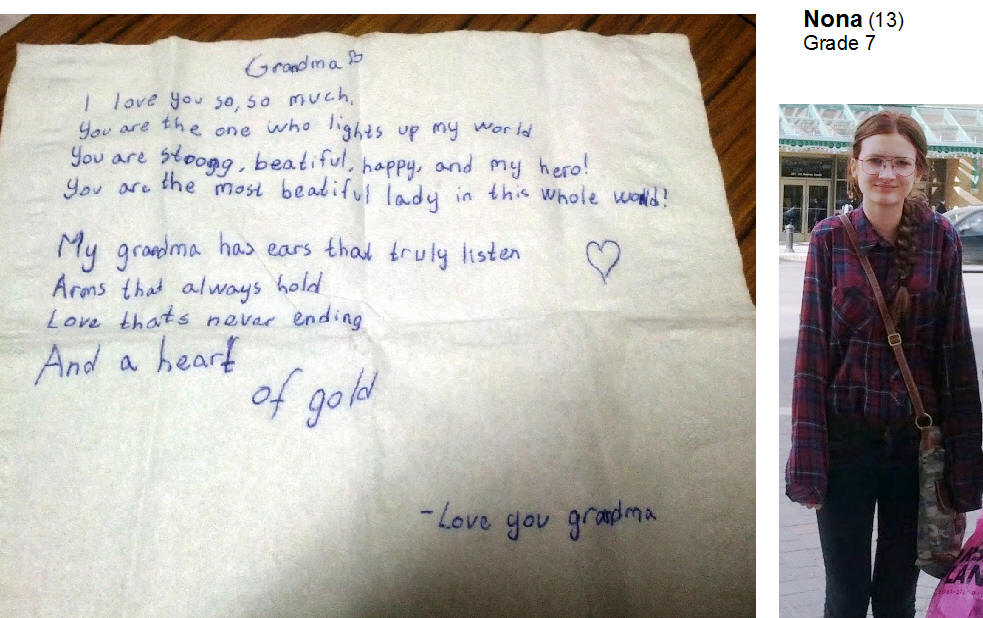 Grandma
I love you so, so much.
You are the one who lights up my world
You are stoogg, beatiful, happy, and my hero!
You are the most beatiful lady in this whole world!
My grandma has ears that truly listen
Arms that always hold
Love thats never ending
And a heart
of gold
-Love you grandma
Nona (13)
Grade 7